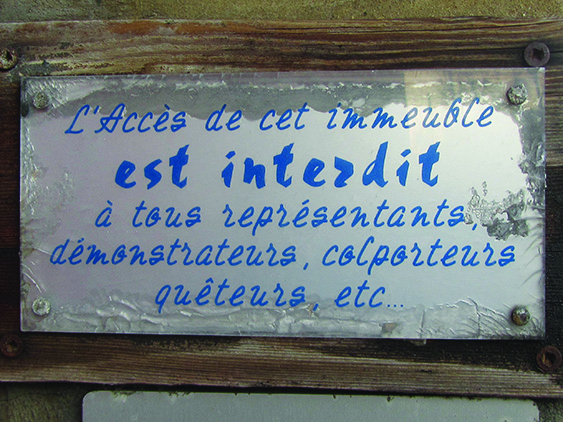 L'Accès de cet immeuble
est interdit
à tous représentants,
démonstrateurs, colporteurs
quêteurs, etc...